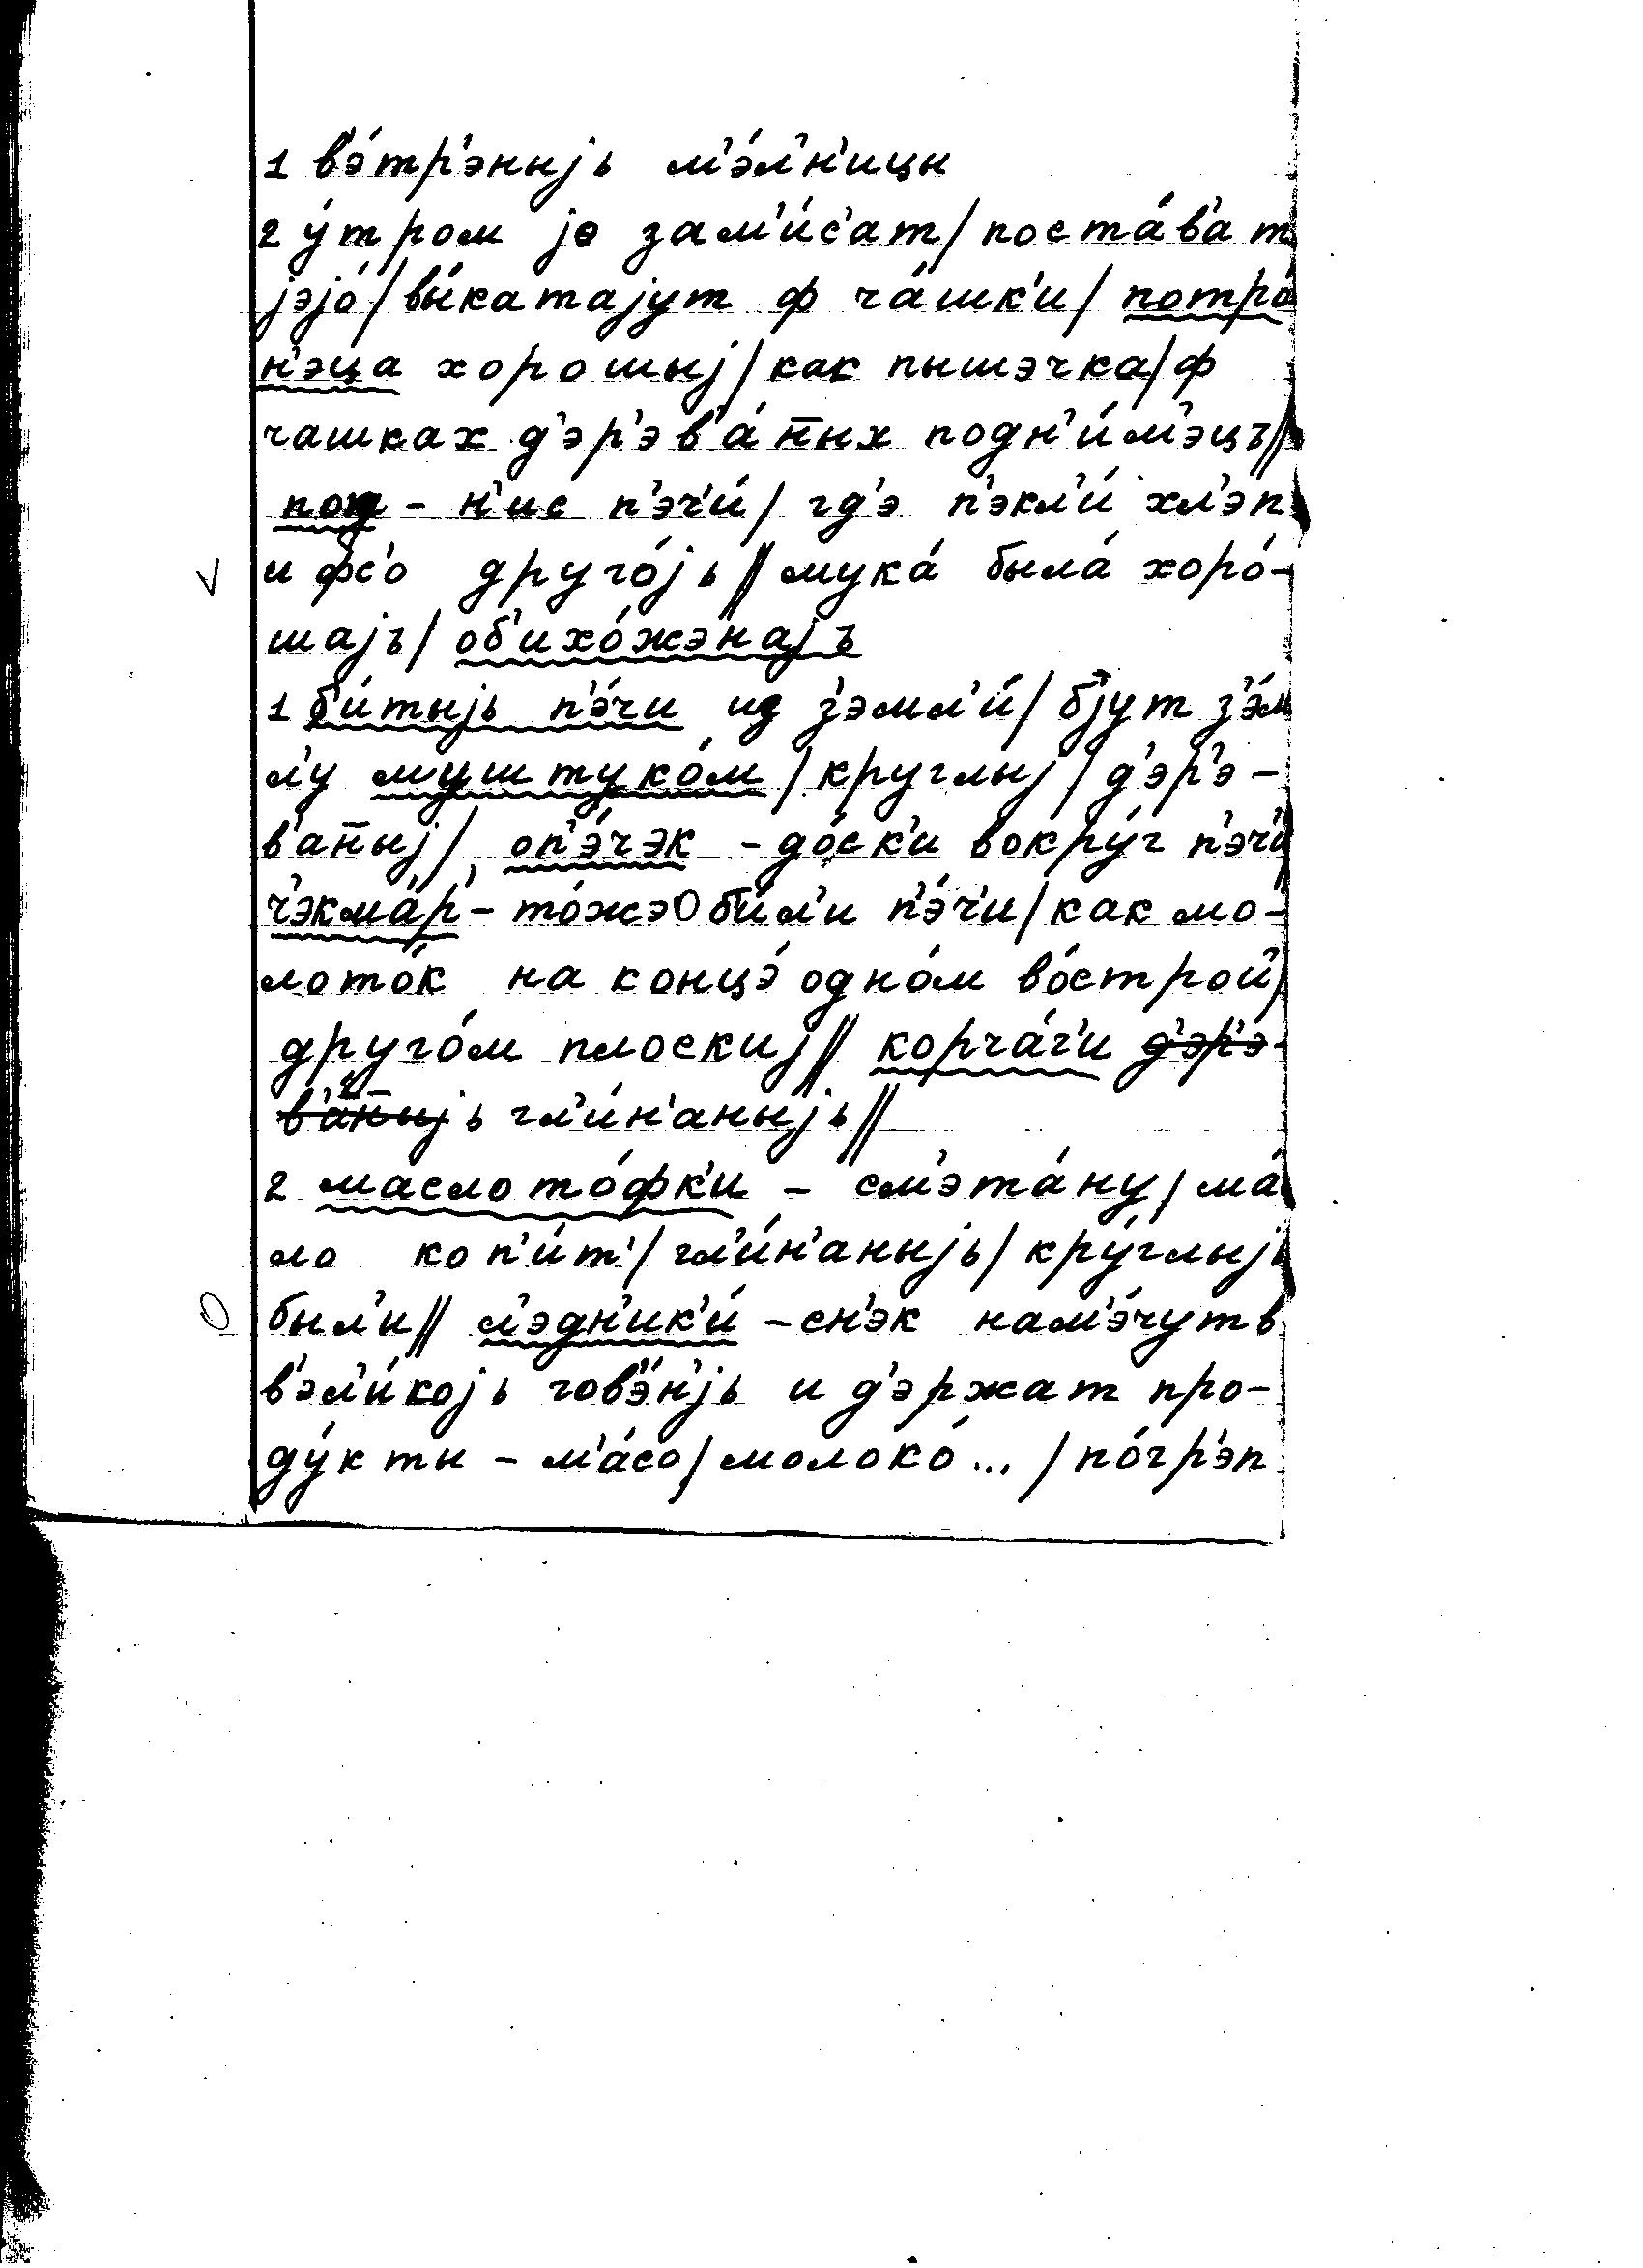 1 в'э́тр'эныјь м'э́л'н'ицы
2 у́тром јо зам'и́с'ат / поста́в'ат
јэјо́ / вы́катајут ф ча́шк'и / потро́
н'эца хорошыј / как пышэчка / ф
чашках д'эр'эв'а́н̄ых подн'и́м'эцъ //
под - н'ис п'эч'и́ / гд'э п'экл'и́ хл'эп
V и фс'о друго́јь // мука́ была́ хоро́-
шајъ / об'ихо́жэнајъ
1 б'и́тыјь п'э́чи из з'эмл'и́ / бјут з'э́м
л'у муштуко́м / круглыј / д'эр'э-
в'ан̄ыј / оп'э́чэк - до́ск'и вокру́г п'эч'и́
ч'экма́р' - то́жэ О б'и́л'и п'э́ч'и / как мо-
лото́к на концэ́ одно́м во́строй /
друго́м плоскиј // корча́г'и д'эр'э-
в'а́н̄ыјь гл'и́н'аныјь //
2 маслото́фк'и - см'эта́ну / ма́
ло коп'и́т' / гл'и́н'аныјь / кру́глыјь
О был'и // л'эдн'ик'и́ - сн'эк нам'э́чут в
в'эл'и́којь гов'э́н'јь и д'эржат про-
ду́кты - м'а́со / молоко́ ... / по́гр'эп